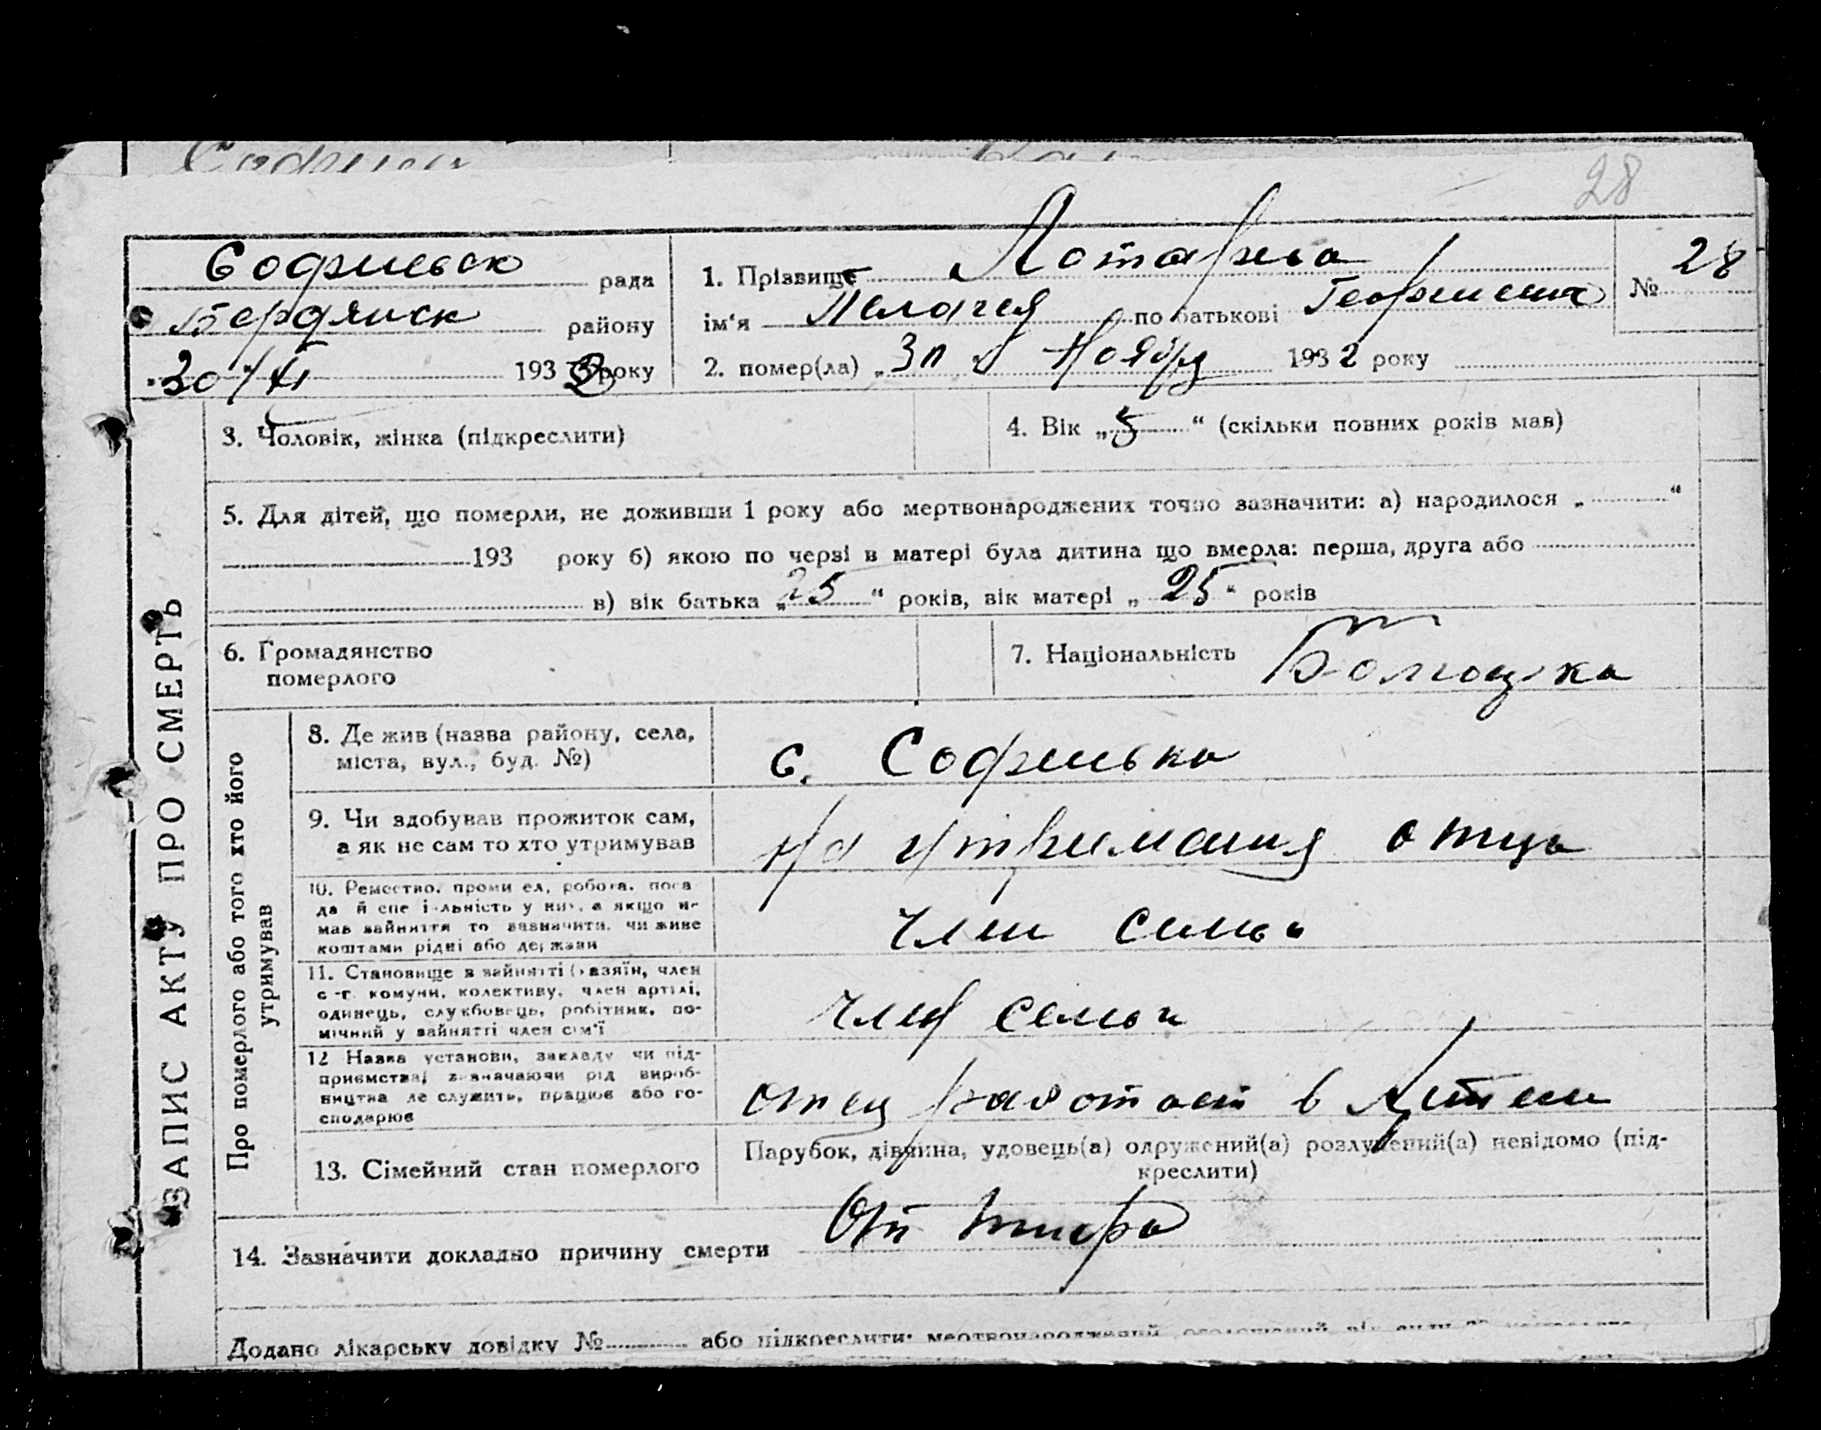 28
Софиевск рада
Бердянск району
"30/XI 1932 року
1. Прізвище Лотарева
ім'я Пелагея по батькові Георгиевна
№ 28
2. помер(ла) „30 Ноября 1932 року
ЗАПИС АКТУ ПРО СМЕРТЬ
3. Чоловік, жінка (підкреслити)
4. Вік „5“ (скільки повних років мав)
5. Для дітей, що померли, не доживши 1 року або мертвонароджених точно зазначити: а) народилося „ “
193 року б) якою по черзі в матері була дитина що вмерла: перша, друга або
в) вік батька „25“ років, вік матері „25“ років
6. Громадянство
померлого
7. Національність
Про померлого або того хто його
утримував
8. Де жив (назва району, села,
міста, вул., буд. №)
с. Софиевка
9. Чи здобував прожиток сам,
а як не сам то хто утримував
На утримания отца
10. Ремество, промисел, робота, поса-
да й спеціяльність у них, а якщо не
мав зайняття то зазначити, чи живе
коштами рідні або держави
член семьи
11. Становище в зайнятті (хазяїн, член
с.-г. комуни, колективу, член артілі,
одинець, службовець, робітник, по-
мічний у зайнятті член сім'ї
член семьи
12 Назва установи, закладу чи під-
приємства, зазначаючи рід вироб-
ництва де служить, працює або го-
сподарює
отец работает в
13. Сімейний стан померлого
Парубок, дівчина, удовець(а) одружений(а) розлучений(а) невідомо (під-
креслити)
14. Зазначити докладно причину смерти
От
Додано лікарську довідку № або підкреслити: мертвонароджений,